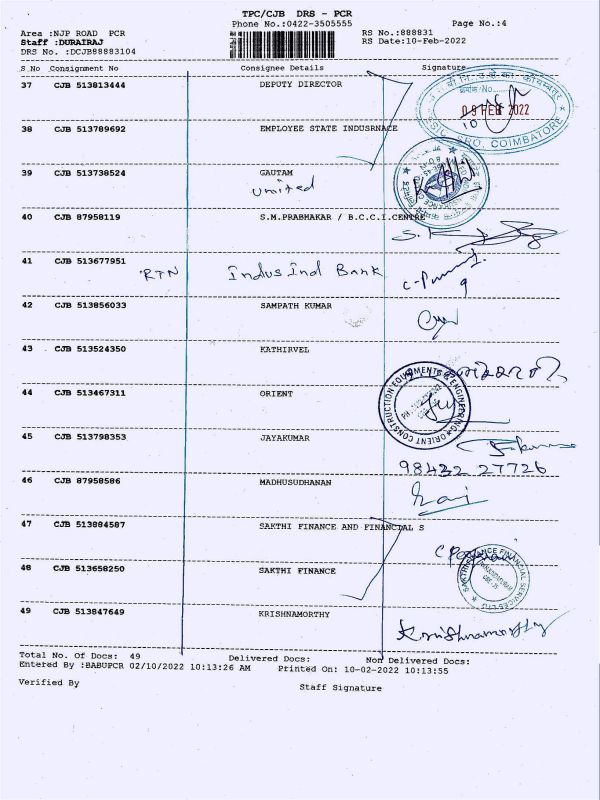 TPC/CJB DRS - PCR
Phone No.:0422-3505555
Page No.:4
Area :NJP ROAD PCR
RS No.:888831
Staff :DURAIRAJ
RS Date:10-Feb-2022
DRS No. :DCJB88883104
S No Consignment No Consignee Details Signature
37 CJB 513813444 DEPUTY DIRECTOR
09 FEB 2022
10
SRO, COIMBATORE
38 CJB 513789692 EMPLOYEE STATE INDUSRNACE
39 CJB 513738524 GAUTAM
United
40 CJB 87958119 S.M.PRABMAKAR / B.C.C.I.CENTRE
41 CJB 513677951
RTN IndusInd Bank
42 CJB 513856033 SAMPATH KUMAR
43 CJB 513524350 KATHIRVEL
44 CJB 513467311 ORIENT
ORIENT CONSTRUCTION EQUIPMENTS & ENGINEERING
45 CJB 513798353 JAYAKUMAR
98432 27726
46 CJB 87958586 MADHUSUDHANAN
47 CJB 513884587 SAKTHI FINANCE AND FINANCIAL S
48 CJB 513658250 SAKTHI FINANCE
SAKTHI FINANCE FINANCIAL SERVICES LTD
49 CJB 513847649 KRISHNAMORTHY
Krishnamorthy
Total No. Of Docs: 49 Delivered Docs: Non Delivered Docs:
Entered By :BABUPCR 02/10/2022 10:13:26 AM Printed On: 10-02-2022 10:13:55
Verified By
Staff Signature